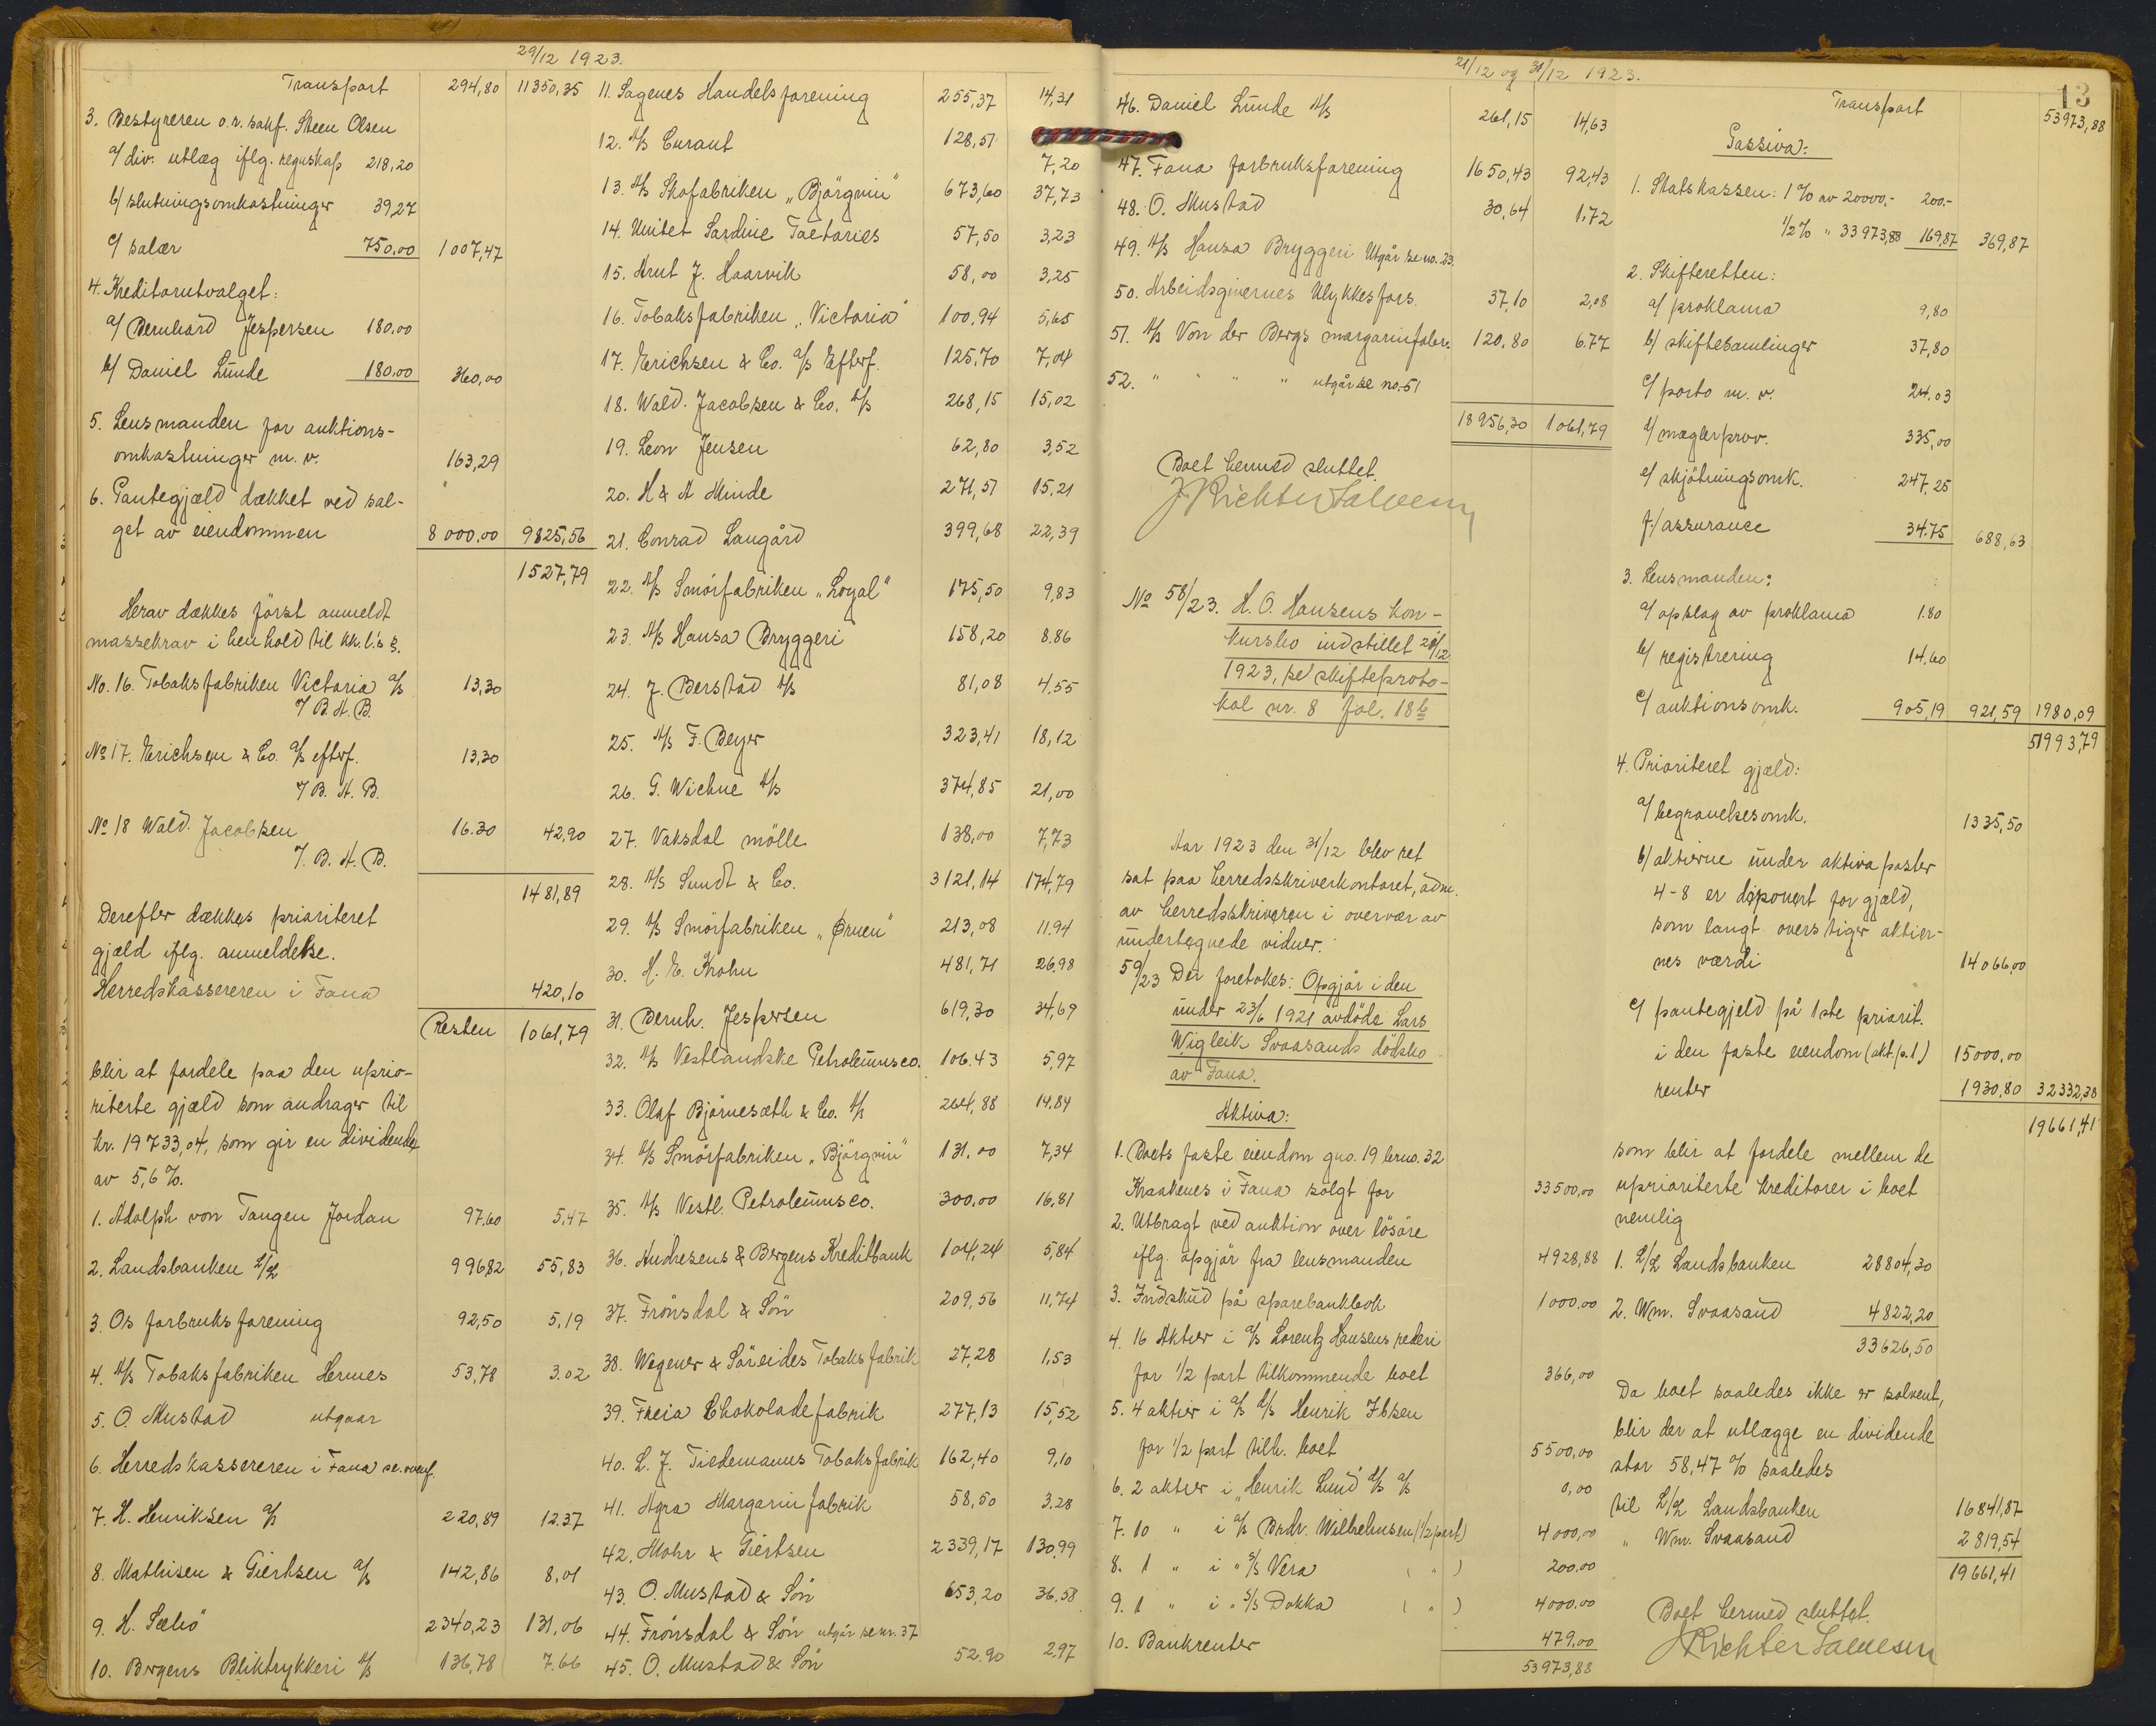 29/12 1923.
Transport 294,80 11350,35
3. Bestyreren o.r. sakf. Steen Olsen
a/ div. utlæg iflg. regnskap 218,20
b/ slutningsomkostninger 39,27
c/ salær 750,00 1007,47
4. Kreditorutvalget:
a/ Bernhard Jespersen 180,00
b/ Daniel Lunde 180,00 360,00
5. Lensmanden for auktions-
omkostninger m. v. 163,29
6. Pantegjæld dækket ved sal-
get av eiendommen 8 000,00 9825,56
1527,79
Herav dækkes först anmeldt
massekrav i henhold til kk.l.'s §.
No. 16. Tobaksfabriken Victoria a/s 13,30
7 B. A. B.
No 17. Erichsen & Co. a/s efterf. 13,30
7 B. A. B.
No 18 Wald. Jacobsen 16.30 42,90
7. B. A. B.
1481,89
Derefter dækkes prioritert
gjæld iflg. anmeldelse.
Herredskassereren i Fana 420,10
Resten 1061,79
blir at fordele paa den uprio-
riterte gjæld som andrager til
kr. 19733,04, som gir en dividende
av 5,6 %.
1. Adolph von Tangen Jordan 97,60 5,47
2. Landsbanken L/L 996,82 55,83
3. Os forbruksforening 92,50 5,19
4. A/S Tobaksfabriken Hermes 53,78 3.02
5. O. Mustad utgaar
6. Herredskassereren i Fana se ovenf.
7. H. Henriksen a/s 220,89 12.37
8. Mathisen & Giertsen a/s 142,86 8,01
9. H. Sælö 2340,23 131,06
10. Bergens Bliktrykkeri A/S 136,78 7.66
11. Sagenes Handelsforening 255,37 14,31
12. A/S Curant 128,51 7,20
13. A/S Skofabriken „Björgvin" 673,60 37,73
14. Unitet Sardine Factories 57,50 3,23
15. Arnt J. Haarvik 58,00 3,25
16. Tobaksfabriken „Victoria" 100,94 5,65
17. Erichsen & Co. a/s Efterf. 125,70 7,04
18. Wald. Jacobsen & Co. A/S 268,15 15,02
19. Leon Jensen 62,80 3,52
20. H & A Minde 271,51 15,21
21. Conrad Langård 399,68 22,39
22. A/S Smörfabriken „Loyal" 175,50 9,83
23. A/S Hansa Bryggeri 158,20 8.86
24. J. Berstad A/S 81,08 4,55
25. A/S F. Beyer 323,41 18,12
26. G. Wiehne A/S 374,85 21,00
27. Vaksdal mölle 138,00 7,73
28. A/S Sundt & Co. 3121,14 174,79
29. A/S Smörfabriken „Ørnen" 213,08 11.94
30. H. E. Krohn 481,71 26,98
31. Bernh. Jespersen 619,30 34,69
32. A/S Vestlandske Petroleumsco. 106.43 5,97
33. Olaf Björnesæth & Co. A/S 264,88 14,84
34. A/S Smörfabriken „Björgvin" 131.00 7,34
35. A/S Vestl. Petroleumsco. 300,00 16,81
36. Andresens & Bergens Kreditbank 104,24 5,84
37. Frönsdal & Sön 209,56 11,74
38. Wegener & Söreides Tobaksfabrik 27,28 1,53
39. Freia Chokoladefabrik 277,13 15,52
40. L. J. Tiedemanns Tobaksfabrik 162,40 9,10
41. Agra Margarinfabrik 58,50 3.28
42. Mohr & Giertsen 2339,17 130,99
43. O. Mustad & Sön 653,20 36.58
44. Frönsdal & Sön utgår se nr. 37
45. O. Mustad & Sön 52.90 2.97
21/12 og 31/12 1923.
46. Daniel Lunde A/S 261,15 14,63
47. Fana forbruksforening 1650,43 92,43
48. O. Mustad 30,64 1,72
49. A/S Hansa Bryggeri Utgår se no. 23.
50. Arbeidsgivernes Ulykkesfors. 37,10 2,08
51. A/S Von der Bergs margarinfabr. 120,80 6.77
52. " " " " utgår se no. 51
18956,30 1061,79
Boet hermed sluttet.
J Richter Salvesen
No 58/23. H. O. Hansens kon-
kursbo indstillet 28/12
1923, se skifteproto-
kol nr. 8 fol. 18 b
Aar 1923 den 31/12 blev ret
sat paa herredsskriverkontoret, adm.
av herredsskriveren i overvær av
undertegnede vidner.
59/23 Der foretokes: Opgjör i den
under 23/6 1921 avdöde Lars
Wigleik Svaasands dödsbo
av Fana.
Aktiva:
1. Boets faste eiendom gno. 19 brno. 32
Kraakenes i Fana solgt for 33500,00
2. Utbragt ved auktion over lösöre
iflg. opgjör fra lensmanden 4928,88
3. Indskud på sparebankbok 1000.00
4. 16 Aktier i a/s Lorentz Hansens rederi
for 1/2 part tilkommende boet 366,00
5. 4 aktier i a/s d/s Henrik Ibsen
for 1/2 part tilh. boet 5500,00
6. 2 aktier i „Henrik Lund" d/s a/s 0,00
7. 10 " i a/s Brdr. Wilhelmsen (1/2 part) 4000,00
8. 1 " i " s/s Vera ( " ) 200.00
9. 1 " i " s/s Dokka ( " ) 4000.00
10. Bankrenter 479,00
53973,88
13
Transport 53973,88
Passiva:
1. Statskassen: 1 % av 20000,- 200.-
1/2 % " 33973,88 169,87 369,87
2. Skifteretten:
a/ proklama 9,80
b/ skiftesamlinger 37,80
c/ porto m. v. 24.03
d/ mæglerprov. 335,00
e/ skjötningsomk. 247,25
f/ assurance 34.75 688,63
3. Lensmanden:
a/ opslag av proklama 1.80
b/ registrering 14.60
c/ auktionsomk. 905,19 921,59 1980,09
51993,79
4. Prioriteret gjæld:
a/ begravelsesomk. 1335,50
b/ aktierne under aktiva poster
4-8 er deponert for gjæld,
som langt overstiger aktier-
nes værdi 14066,00
c/ pantegjeld på 1ste priorit.
i den faste eiendom (akt. p. 1) 15000,00
renter 1930,80 32332,38
19661,41
som blir at fordele mellem de
uprioriterte kreditorer i boet
nemlig
1. L/L Landsbanken 28804,30
2. Wm. Svaasand 4822,20
33626,50
Da boet saaledes ikke er solvent,
blir der at utlægge en dividende
stor 58,47 % saaledes
til L/L Landsbanken 16841,87
" Wm. Svaasand 2819,54
19661,41
Boet hermed sluttet.
J Richter Salvesen